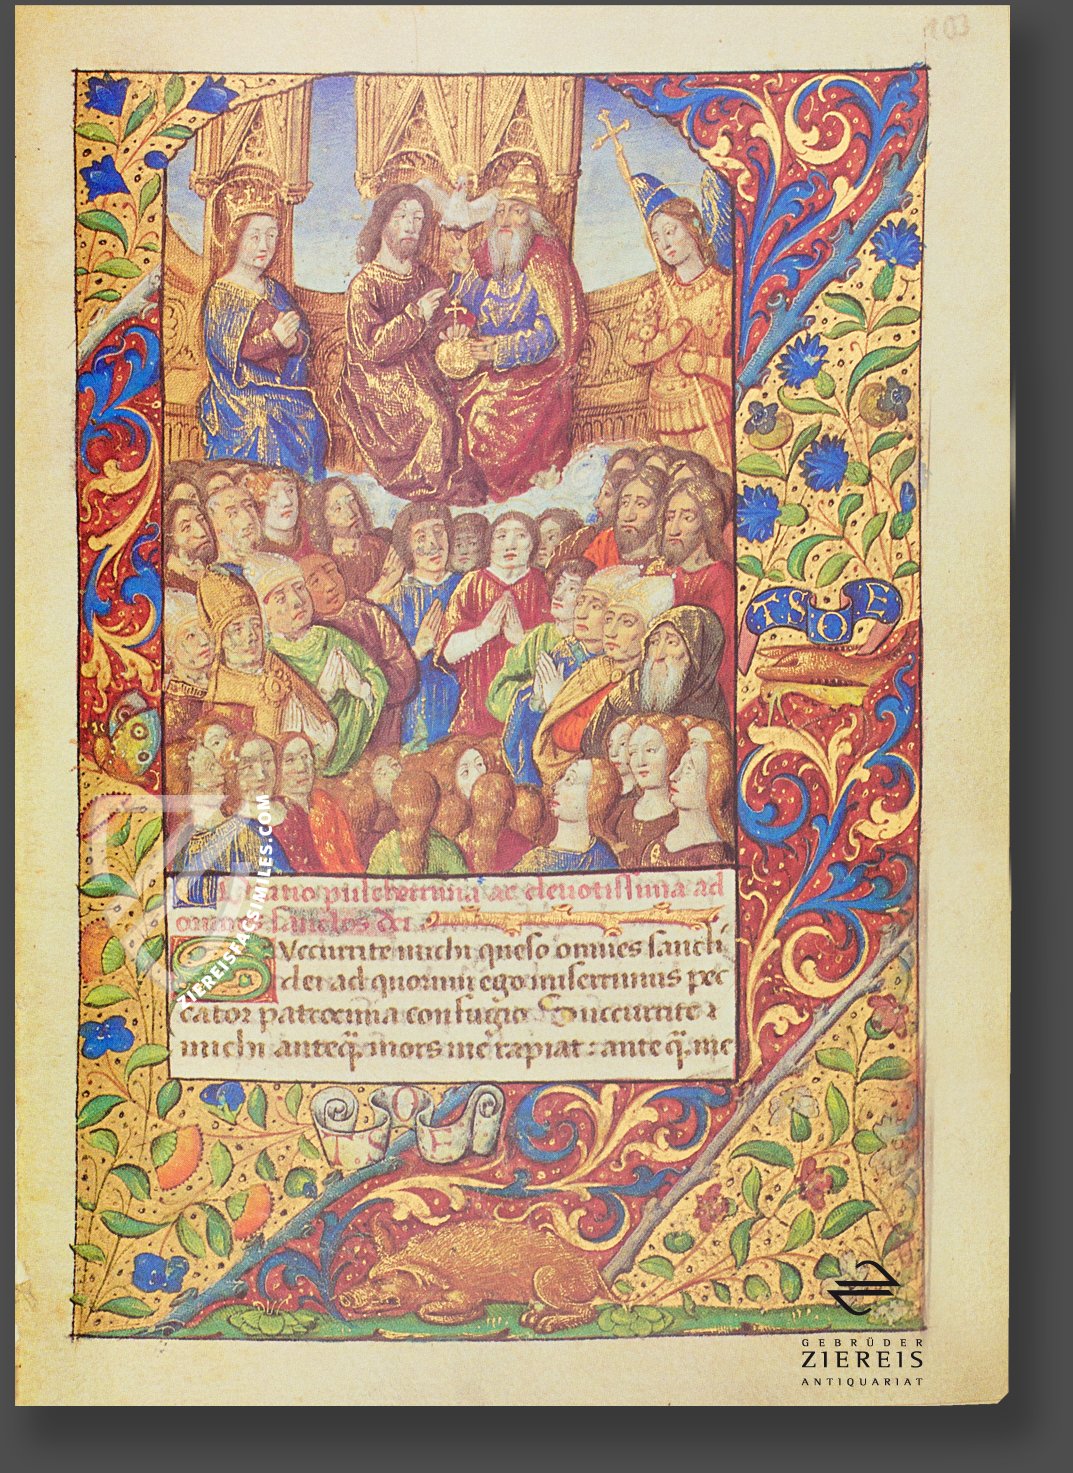 103
T.S
O
E
Oratio pulcherrima ac devotissima ad
omnes sanctos dei
Succurrite michi queso omnes sancti
dei ad quorum ego miserrimus pec
cator patrocinia confugio. Succurrite
michi anteq̃ mors me rapiat: ante q̃ me
T.S
O
E
ZIEREISFACSIMILES.COM
GEBRÜDER
ZIEREIS
ANTIQUARIAT